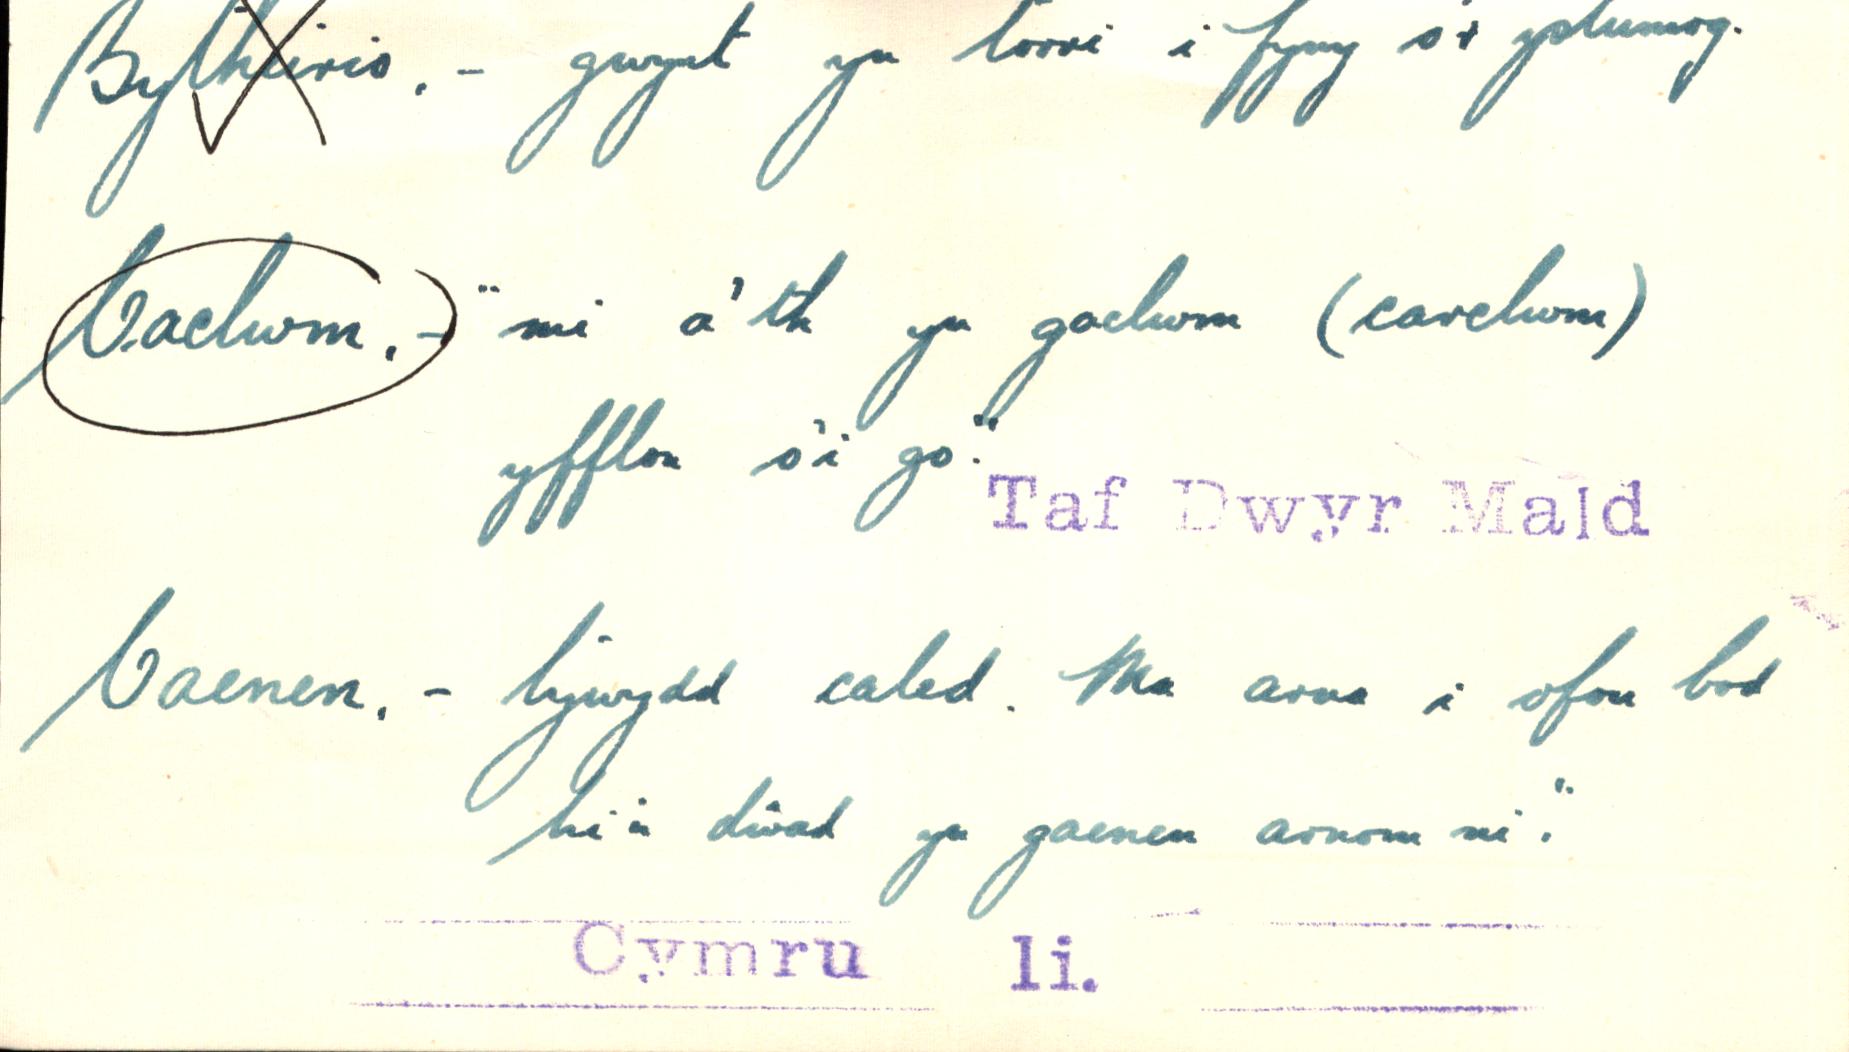 Bytheirio. - gwynt yn torri i fyny o'r ystumog.
Caclwm. - "mi a'th yn gaclwm (carclwm)
yfflon o'i go."
Taf Dwyr Mald
Caenen. - tywydd caled. Ma arna i ofon bod
hi'n dŵad yn gaenen arnom ni."
Cymru li.